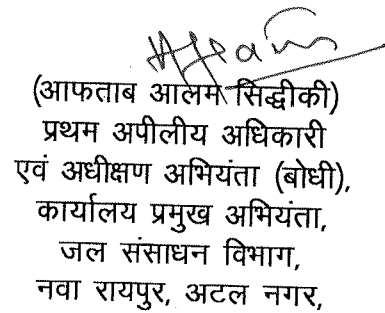 (आफताब आलम सिद्धीकी)
प्रथम अपीलीय अधिकारी
एवं अधीक्षण अभियंता (बोधी),
कार्यालय प्रमुख अभियंता,
जल संसाधन विभाग,
नवा रायपुर, अटल नगर,